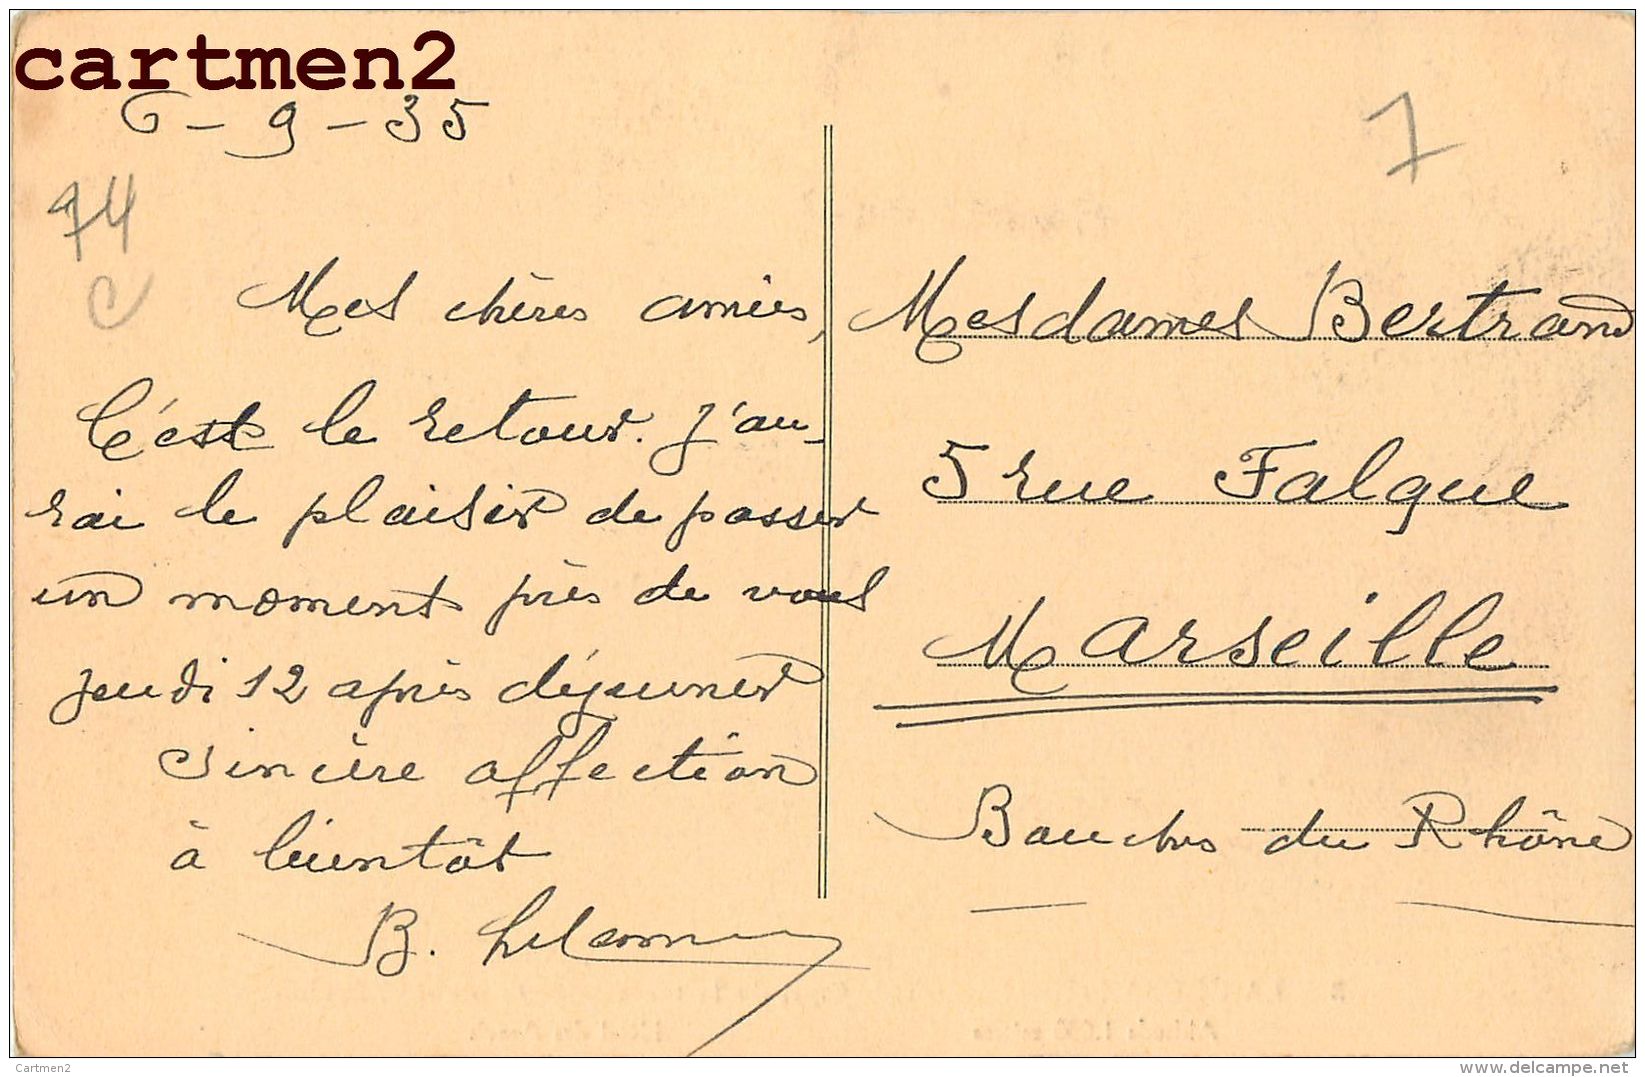 cartmen2
6 - 9 - 35
74
C
7
Mes chères amies,
C'est le retour. J'au-
rai le plaisir de passer
un moment près de vous
jeudi 12 après déjeuner
Sincère affection
à bientôt
B.
Mesdames Bertrand
5 rue Falque
Marseille
Bouches du Rhône
Cartmen2
delcampe.net